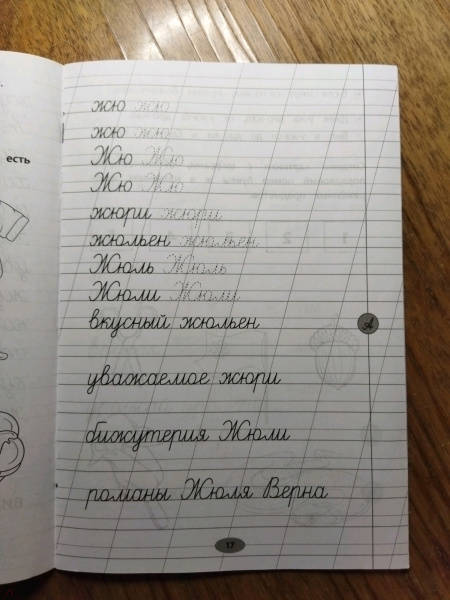 есть
жю жю
жю жю
Жю Жю
Жю Жю
жюри жюри
жюльен жюльен
Жюль Жюль
Жюли Жюли
вкусный жюльен
А
уважаемое жюри
бижутерия Жюли
романы Жюля Верна
17